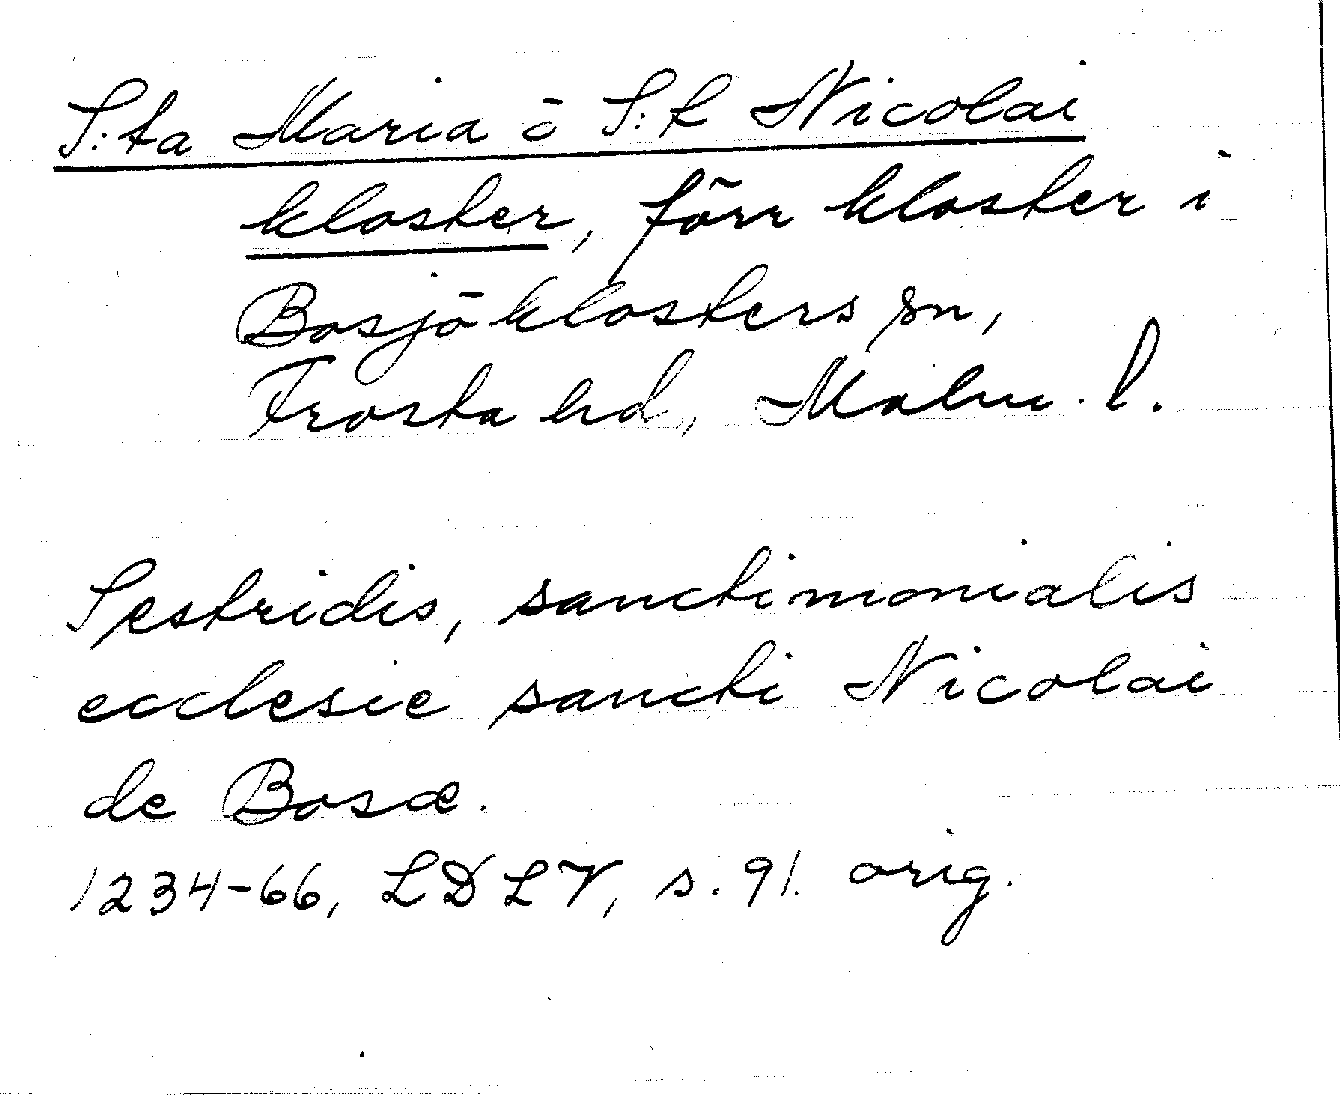 S:ta Maria o S:t Nicolai
kloster, förr kloster i
Bosjöklosters sn,
Frosta hd, Malm. l.
Sestridis, sanctimonialis
ecclesie sancti Nicolai
de Bosæ.
1234-66, LDLV, s. 91. orig.